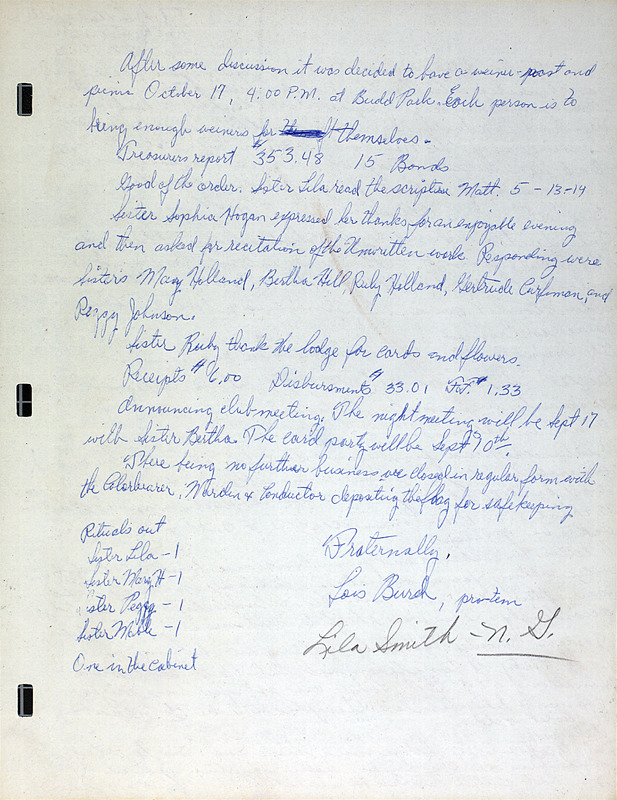 After some discussion it was decided to have a weiner-roast and
picnic October 17, 4:00 P.M. at Budd Park. Each person is to
bring enough weiners for themselves.
Treasurers report $353.48 15 Bonds
Good of the order. Sister Lila read the scripture Matt. 5-13-14
Sister Sophia Hogan expressed her thanks for an enjoyable evening
and then asked for recitation of the Unwritten work. Responding were
Sisters Mary Holland, Bertha Hill, Ruby Holland, Gertrude Curfman, and
Peggy Johnson.
Sister Ruby thank the lodge for cards and flowers.
Receipts $6.00 Disbursments $33.01 F.F. $1.33
Announcing club meeting. The night meeting will be Sept 17
with Sister Bertha. The card party will be Sept 10th.
There being no further business we closed in regular form with
the Colorbearer, Warden & Conductor depositing the flag for safekeeping
Rituals out
Sister Lila - 1
Sister Mary H - 1
Sister Peggy - 1
Sister Mable - 1
One in the cabinet
Fraternally,
Lois Burch, pro-tem
Lila Smith - N. G.